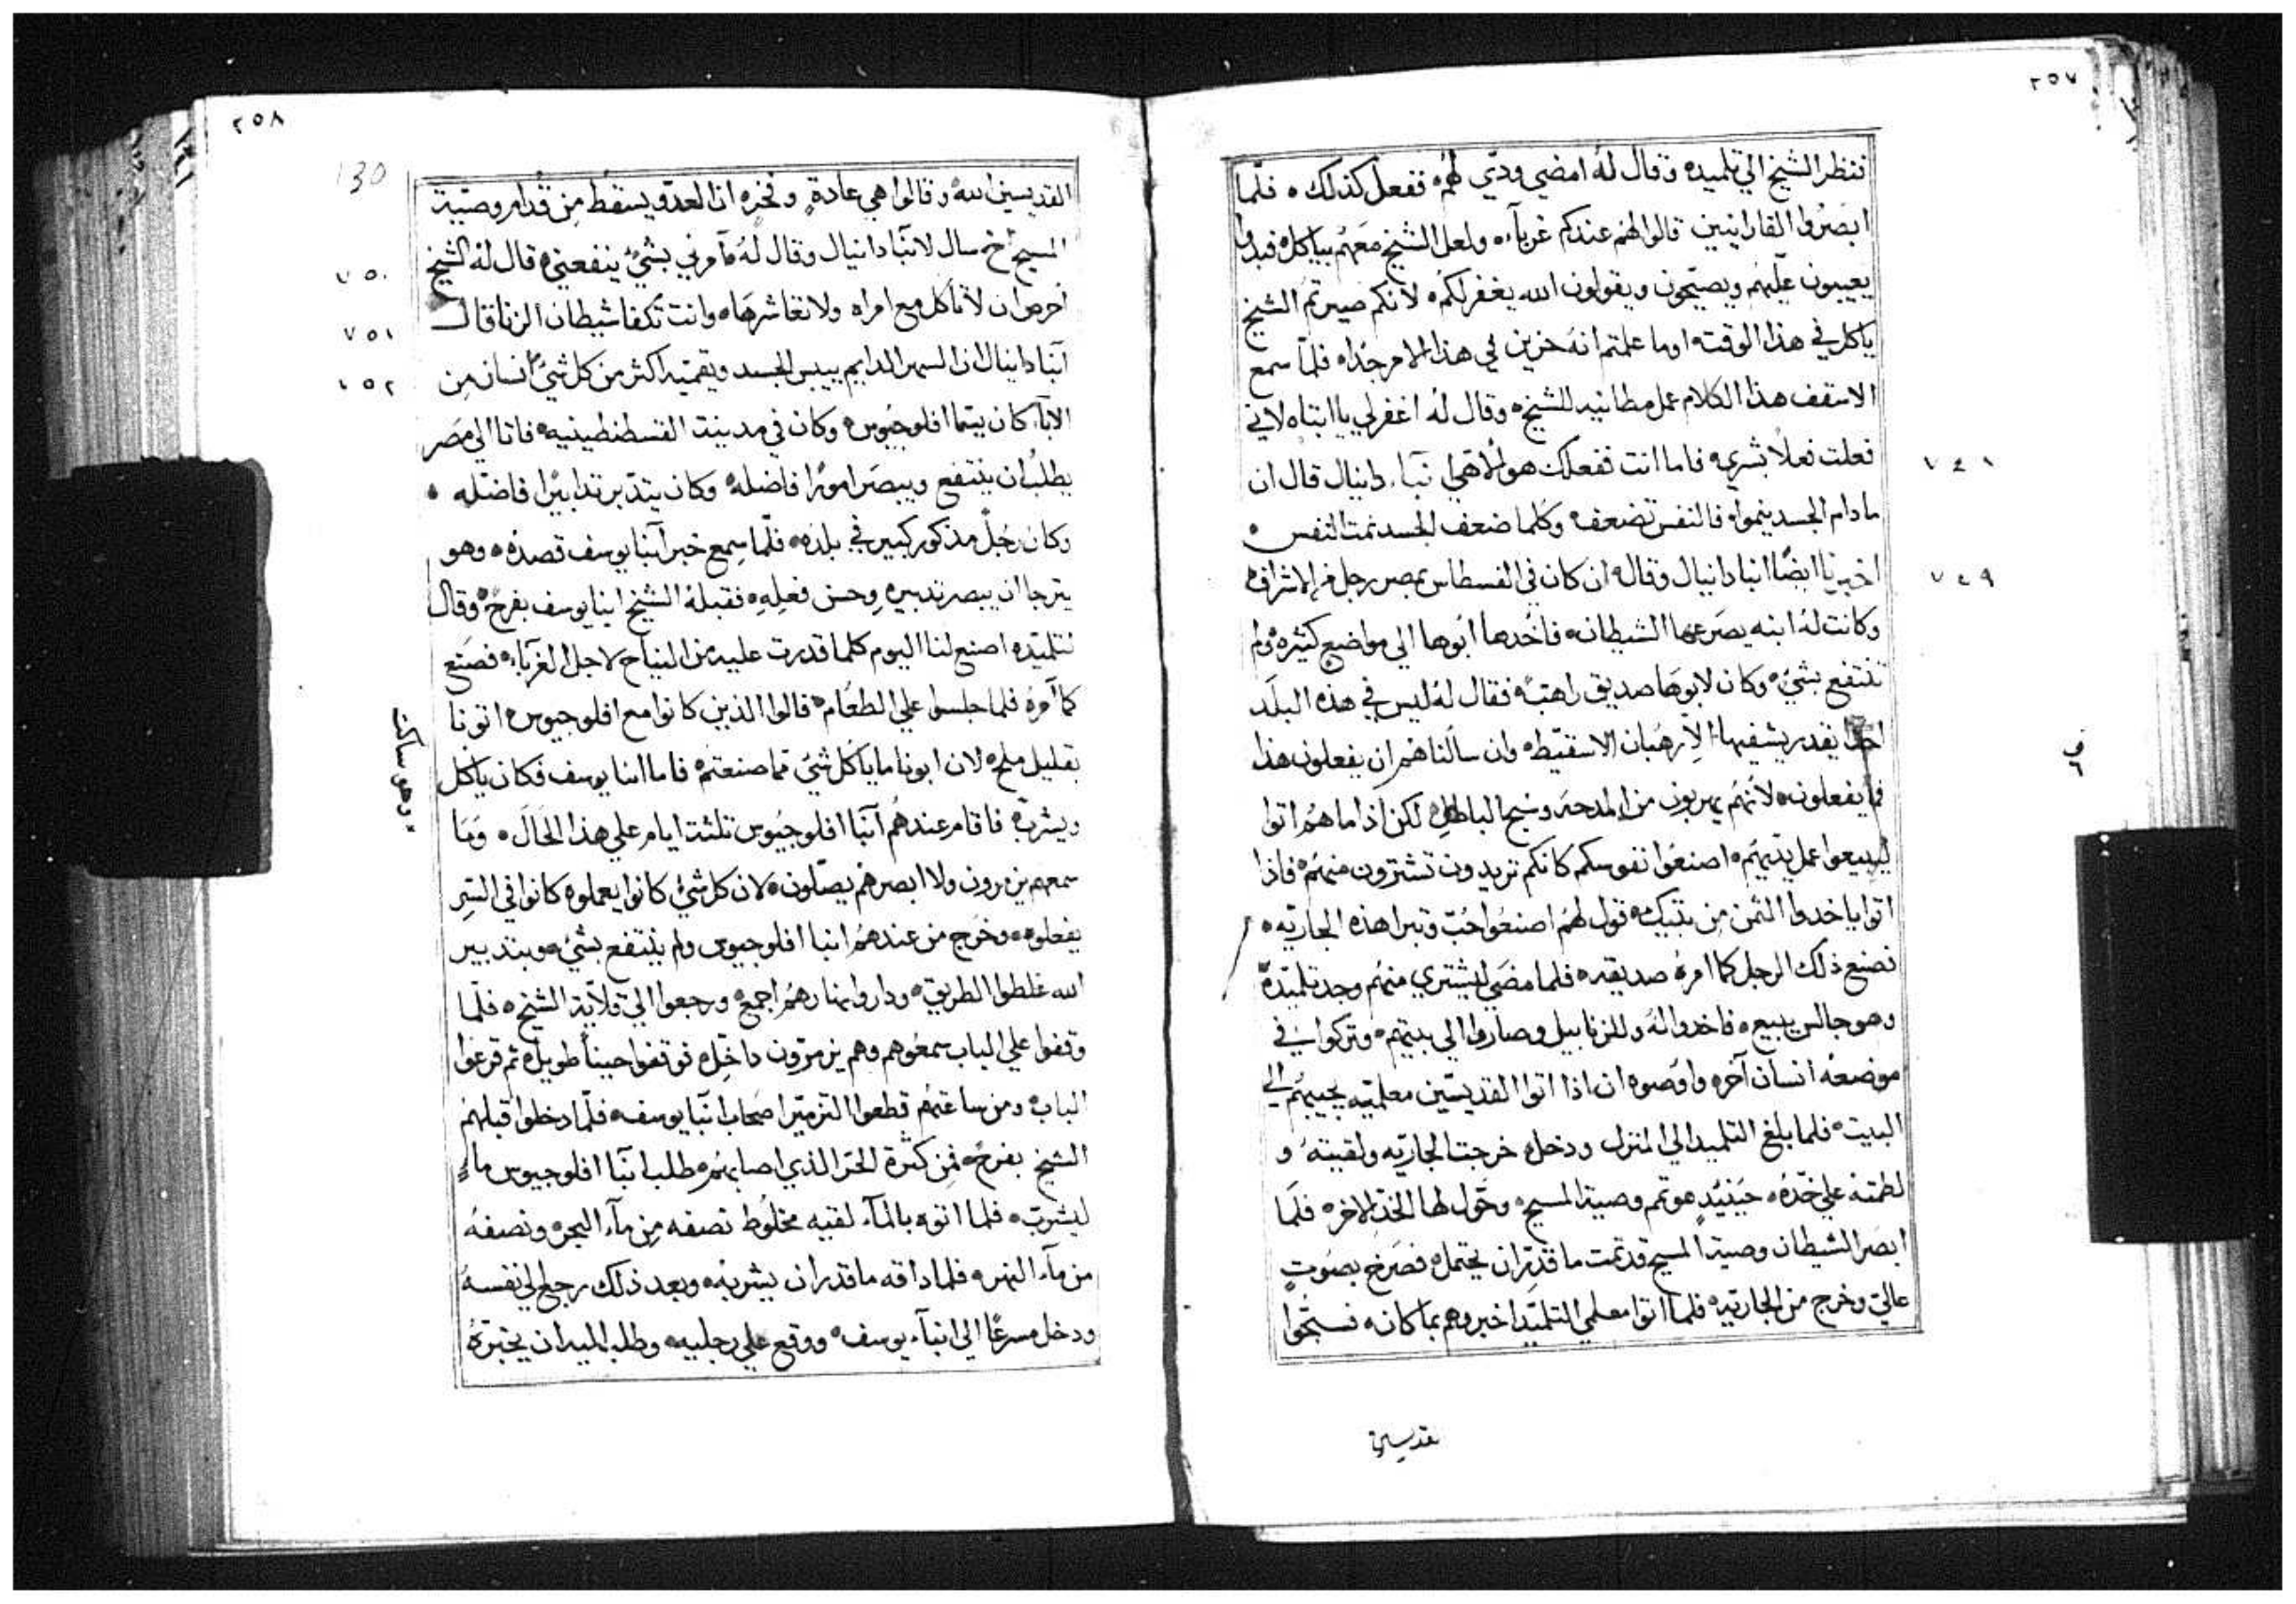 ٢٥٧
فنظر الشيخ الي تلميده وقال له امضي ودّي لهم ففعل كذلك ٠ فلمّا
ابصروا القارانيين قالوا لهم عندكم غرباء٠ ولعل الشيخ معهم بياكل٠ فبدوا
يعيبون عليهم ويصيحون ويقولون الله يغفر لكم٠ لانكم صيرتم الشيخ
ياكل في هذا الوقت٠ اوما علمتم انه حزين في هذا الامر جدا٠ فلما سمع
الاسقف هذا الكلام عمل مطانيه للشيخ٠ وقال له اغفر لي يا ابتاه لاني
فعلت فعلاً بشري٠ فاما انت ففعلك هو الاهي انبا٠ دانيال قال ان
٧٤٨
مادام الجسد ينموا٠ فالنفس تضعف٠ وكلما ضعف الجسد نمت النفس٠
اخبرنا ايضًا انبا دانيال وقال٠ ان كان في الفسطاس بمصر رجل من الاشراف٠
٧٤٩
وكانت له ابنه يصرعها الشيطان٠ فاخدها ابوها الي مواضع كثيره ولم
تنتفع بشيء٠ وكان لابوها صديق راهب٠ فقال له ليس في هذه البلد
احدًا يقدر يشفيها الا رهبان الاسقيط٠ وان سالناهم ان يفعلون هذا
فما يفعلون٠ لانهم يهربون من المدحه وسبح الباطل٠ لكن اذا ما هم اتوا
ليبيعوا عمل يديهم٠ اصنعوا نفوسكم كانكم تريدون تشترون منهم٠ فاذا
اتوا ياخدوا الثمن من بيتك٠ قول لهم اصنعوا حُبّ وتبرا هذه الجاريه٠
فصنع ذلك الرجل كما امره صديقه٠ فلما مضي ليشتري منهم وجد تلميدهم
وهو جالس يبيع٠ فاخدوا له وللزنابيل وصاروا الي بيتهم٠ وتركوا في
موضعه انسان آخر٠ واوصوه ان اذا اتوا القديسين معلميه يجيبهم الي
البيت٠ فلما بلغ التلميد الي المنزل ودخل٠ خرجت الجاريه ولقيته٠ و
لطمته علي خدّه٠ حينيدٍ هو تمم وصية المسيح٠ وحّول لها الخد الاخر٠ فلما
ابصر الشيطان وصية المسيح قد تمت ما قدر ان يحتمل٠ فصرخ بصوتٍ
عالي وخرج من الجاريه٠ فلما اتوا معلمي التلميد اخبروهم بما كان٠ فسبحوا
٢٥٨
130
القديسين لله٠ وقالوا هي عادة٠ وفخره ان العدو يسقط من قدام وصية
المسيح اخ سال لانبا دانيال وقال له مآمرني بشيء ينفعني٠ قال له الشيخ
٧٥٠
احرص ان لا تاكل مع امراه ولا تعاشرها٠ وانت تكفا شيطان الزنا قال
٧٥١
آنبا دانيال ان السهر الدايم ييبس الجسد ويقميه اكثر من كل شيء انسان من
٧٥٢
الآباء كان يتما افلوجيوس٠ وكان في مدينت القسطنطينيه٠ فاتا الي مصر
يطلب ان ينتفع ويبصر امورًا فاضله٠ وكان يتدبر تدابيرًا فاضله ٠
وكان رجلٌ مذكور كبير في بلده٠ فلما سمع خبر آنبا يوسف قصده٠ وهو
يترجا ان يبصر تدبيره وحسن فعله٠ فقبله الشيخ انبا يوسف بفرح٠ وقال
لتلميده اصنع لنا اليوم كلما قدرت عليه من النياح لاجل الغرباء٠ فصنع
كما آمره فلما جلسوا علي الطعام٠ قالوا الذين كانوا مع افلوجيوس اتونا
بقليل ملح٠ لان ابونا ما ياكل شيء مما صنعتم٠ فاما انبا يوسف فكان ياكل
وهو ساكت
ويشرب٠ فاقام عندهم آنبا افلوجيوس ثلثت ايام علي هذا الحال٠ وما
سمعهم يزمرون ولا ابصرهم يصلون٠ لان كل شيء كانوا يعملوه كانوا في السّر
يفعلوه٠ وخرج من عندهم انبا افلوجيوس ولم ينتفع بشيء٠ وبتدبير
الله غلطوا الطريق٠ وداروا نهارهم اجمع٠ ورجعوا الي قلاّية الشيخ٠ فلّما
وقفوا علي الباب سمعوهم وهم يزمرون داخل٠ فوقفوا حيناً طويل٠ ثم قرعوا
الباب٠ ومن ساعتهم قطعوا التزمير اصحاب انبا يوسف٠ فلما دخلوا قبلهم
الشيخ بفرح٠ فمن كثرة الحر الذي اصابهم٠ طلب انبا افلوجيوس ماء
ليشرب٠ فلما اتوه بالماء لقيه مخلوط نصفه من ماء البحر٠ ونصفه
من ماء النهر٠ فلما داقه ما قدر ان يشربه٠ وبعد ذلك رجع الي نفسه
ودخل مسرعًا الي انبا يوسف٠ ووقع علي رجليه٠ وطلب اليه ان يخبره